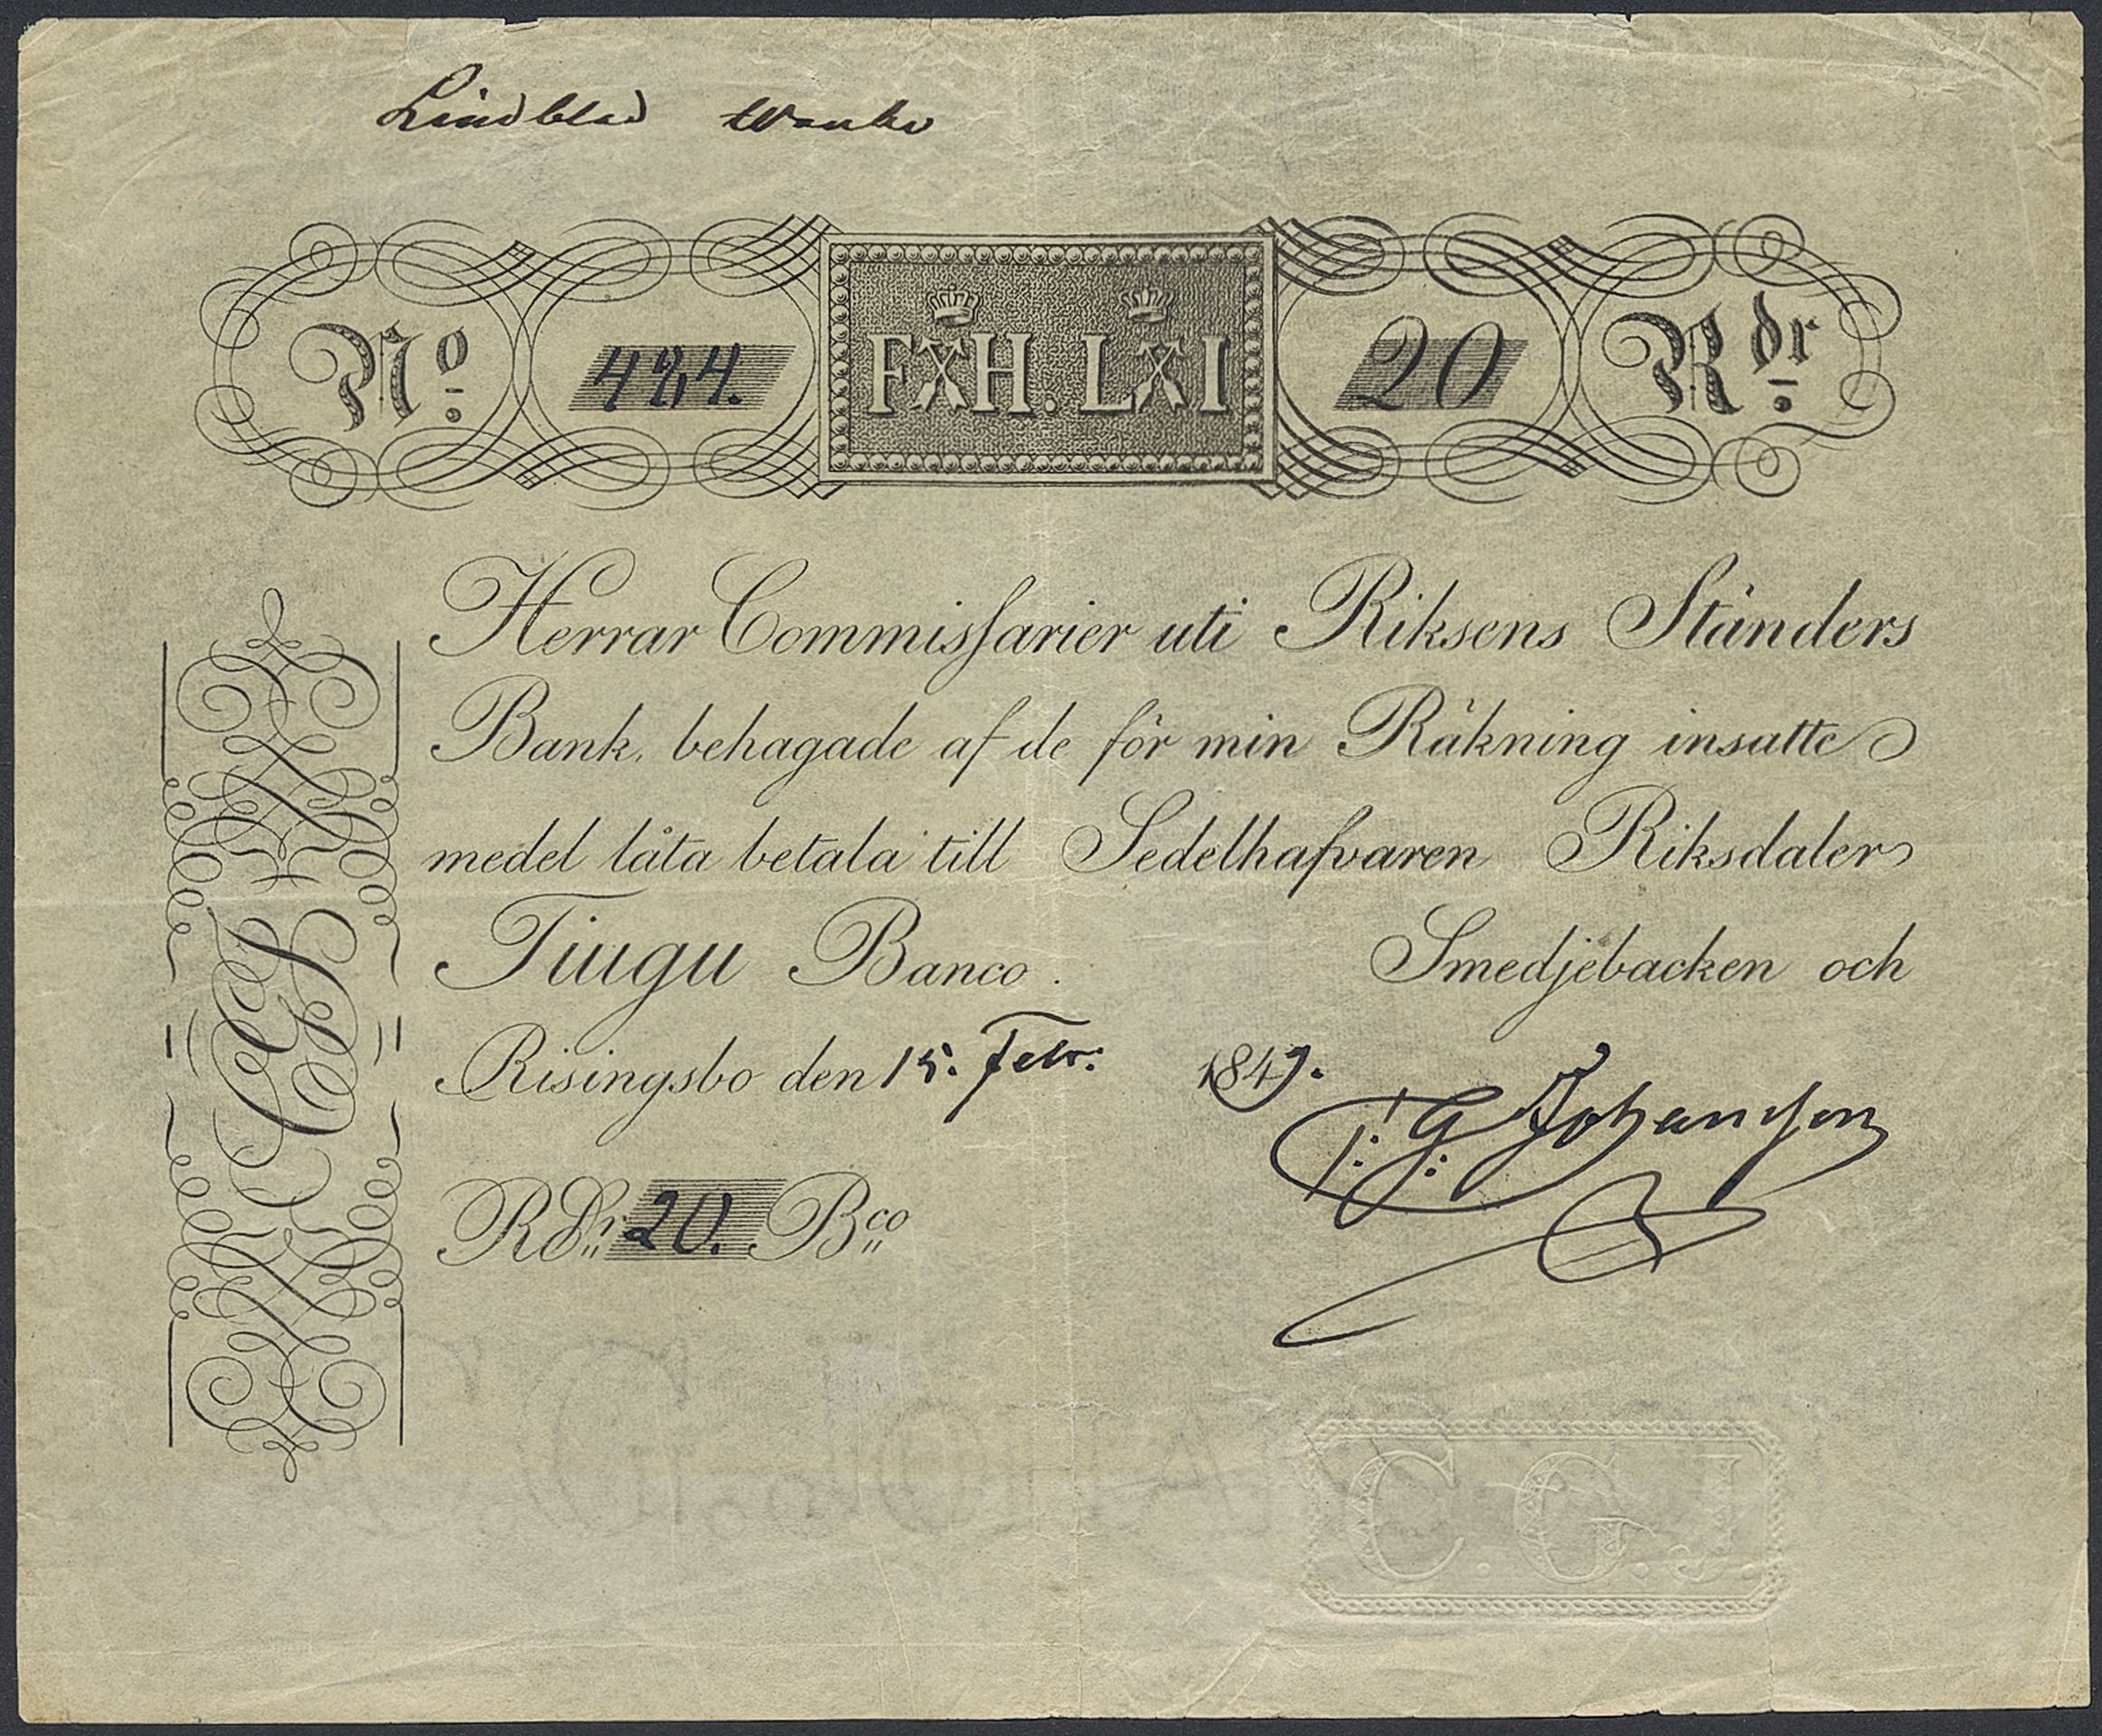 Lindblad
No 484. FH. LI 20 Rdr
Herrar Commissarier uti Riksens Ständers
Bank, behagade af de för min Räkning insatte
medel låta betala till Sedelhafvaren Riksdaler
Tiugu Banco. Smedjebacken och
Risingsbo den 15. Febr: 1849.
C: G: Johansson
RDr 20. Bco
C. G. J.